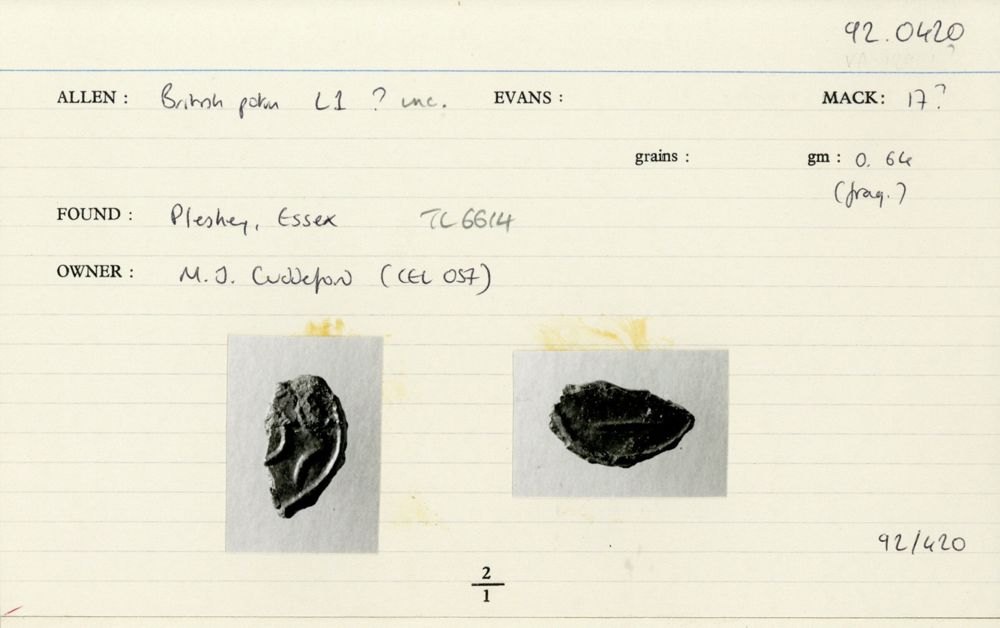 92.0420
ALLEN : British potin L1 ? unc. EVANS : MACK: 17?
grains : gm : 0. 64
(frag.)
FOUND : Pleshey, Essex TL 6614
OWNER : M. J. Cuddeford (CEL 057)
92/420
2
1